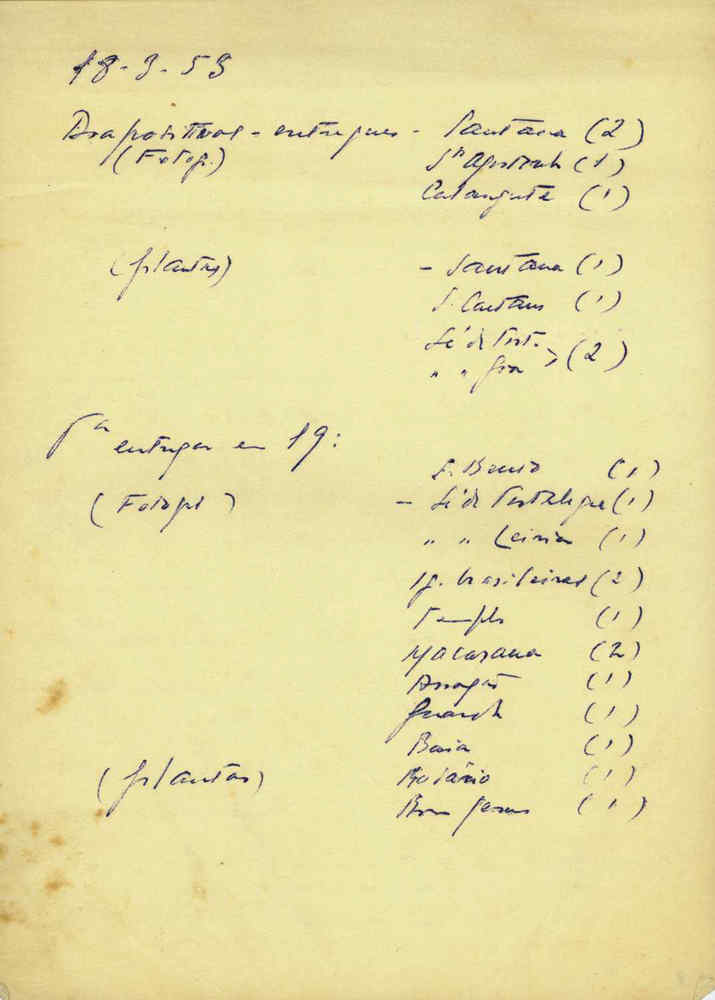 18-3-53
Diapositivos - entregues - Santana (2)
(Fotog.) Stº Agostinho (1)
Calangute (1)
(plantas) - Santana (1)
S. Caetano (1)
Sé de Port.
" " Goa > (2)
Pª entregar em 19:
S. Bento (1)
(Fotogr) - Sé de Portalegre (1)
" " Leiria (1)
Ig. brasileiras (2)
Templo (1)
Macasana (2)
(1)
(1)
Baía (1)
(plantas) Rosário (1)
Bom Jesus (1)